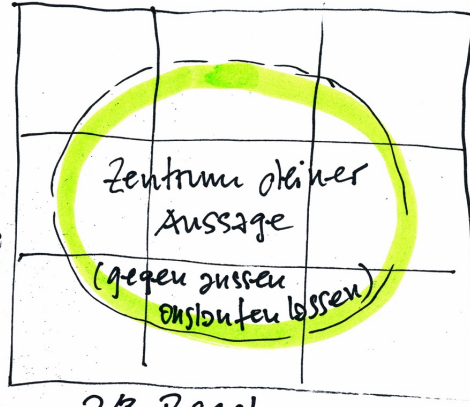 Zentrum deiner
Aussage
(gegen aussen
auslaufen lassen)